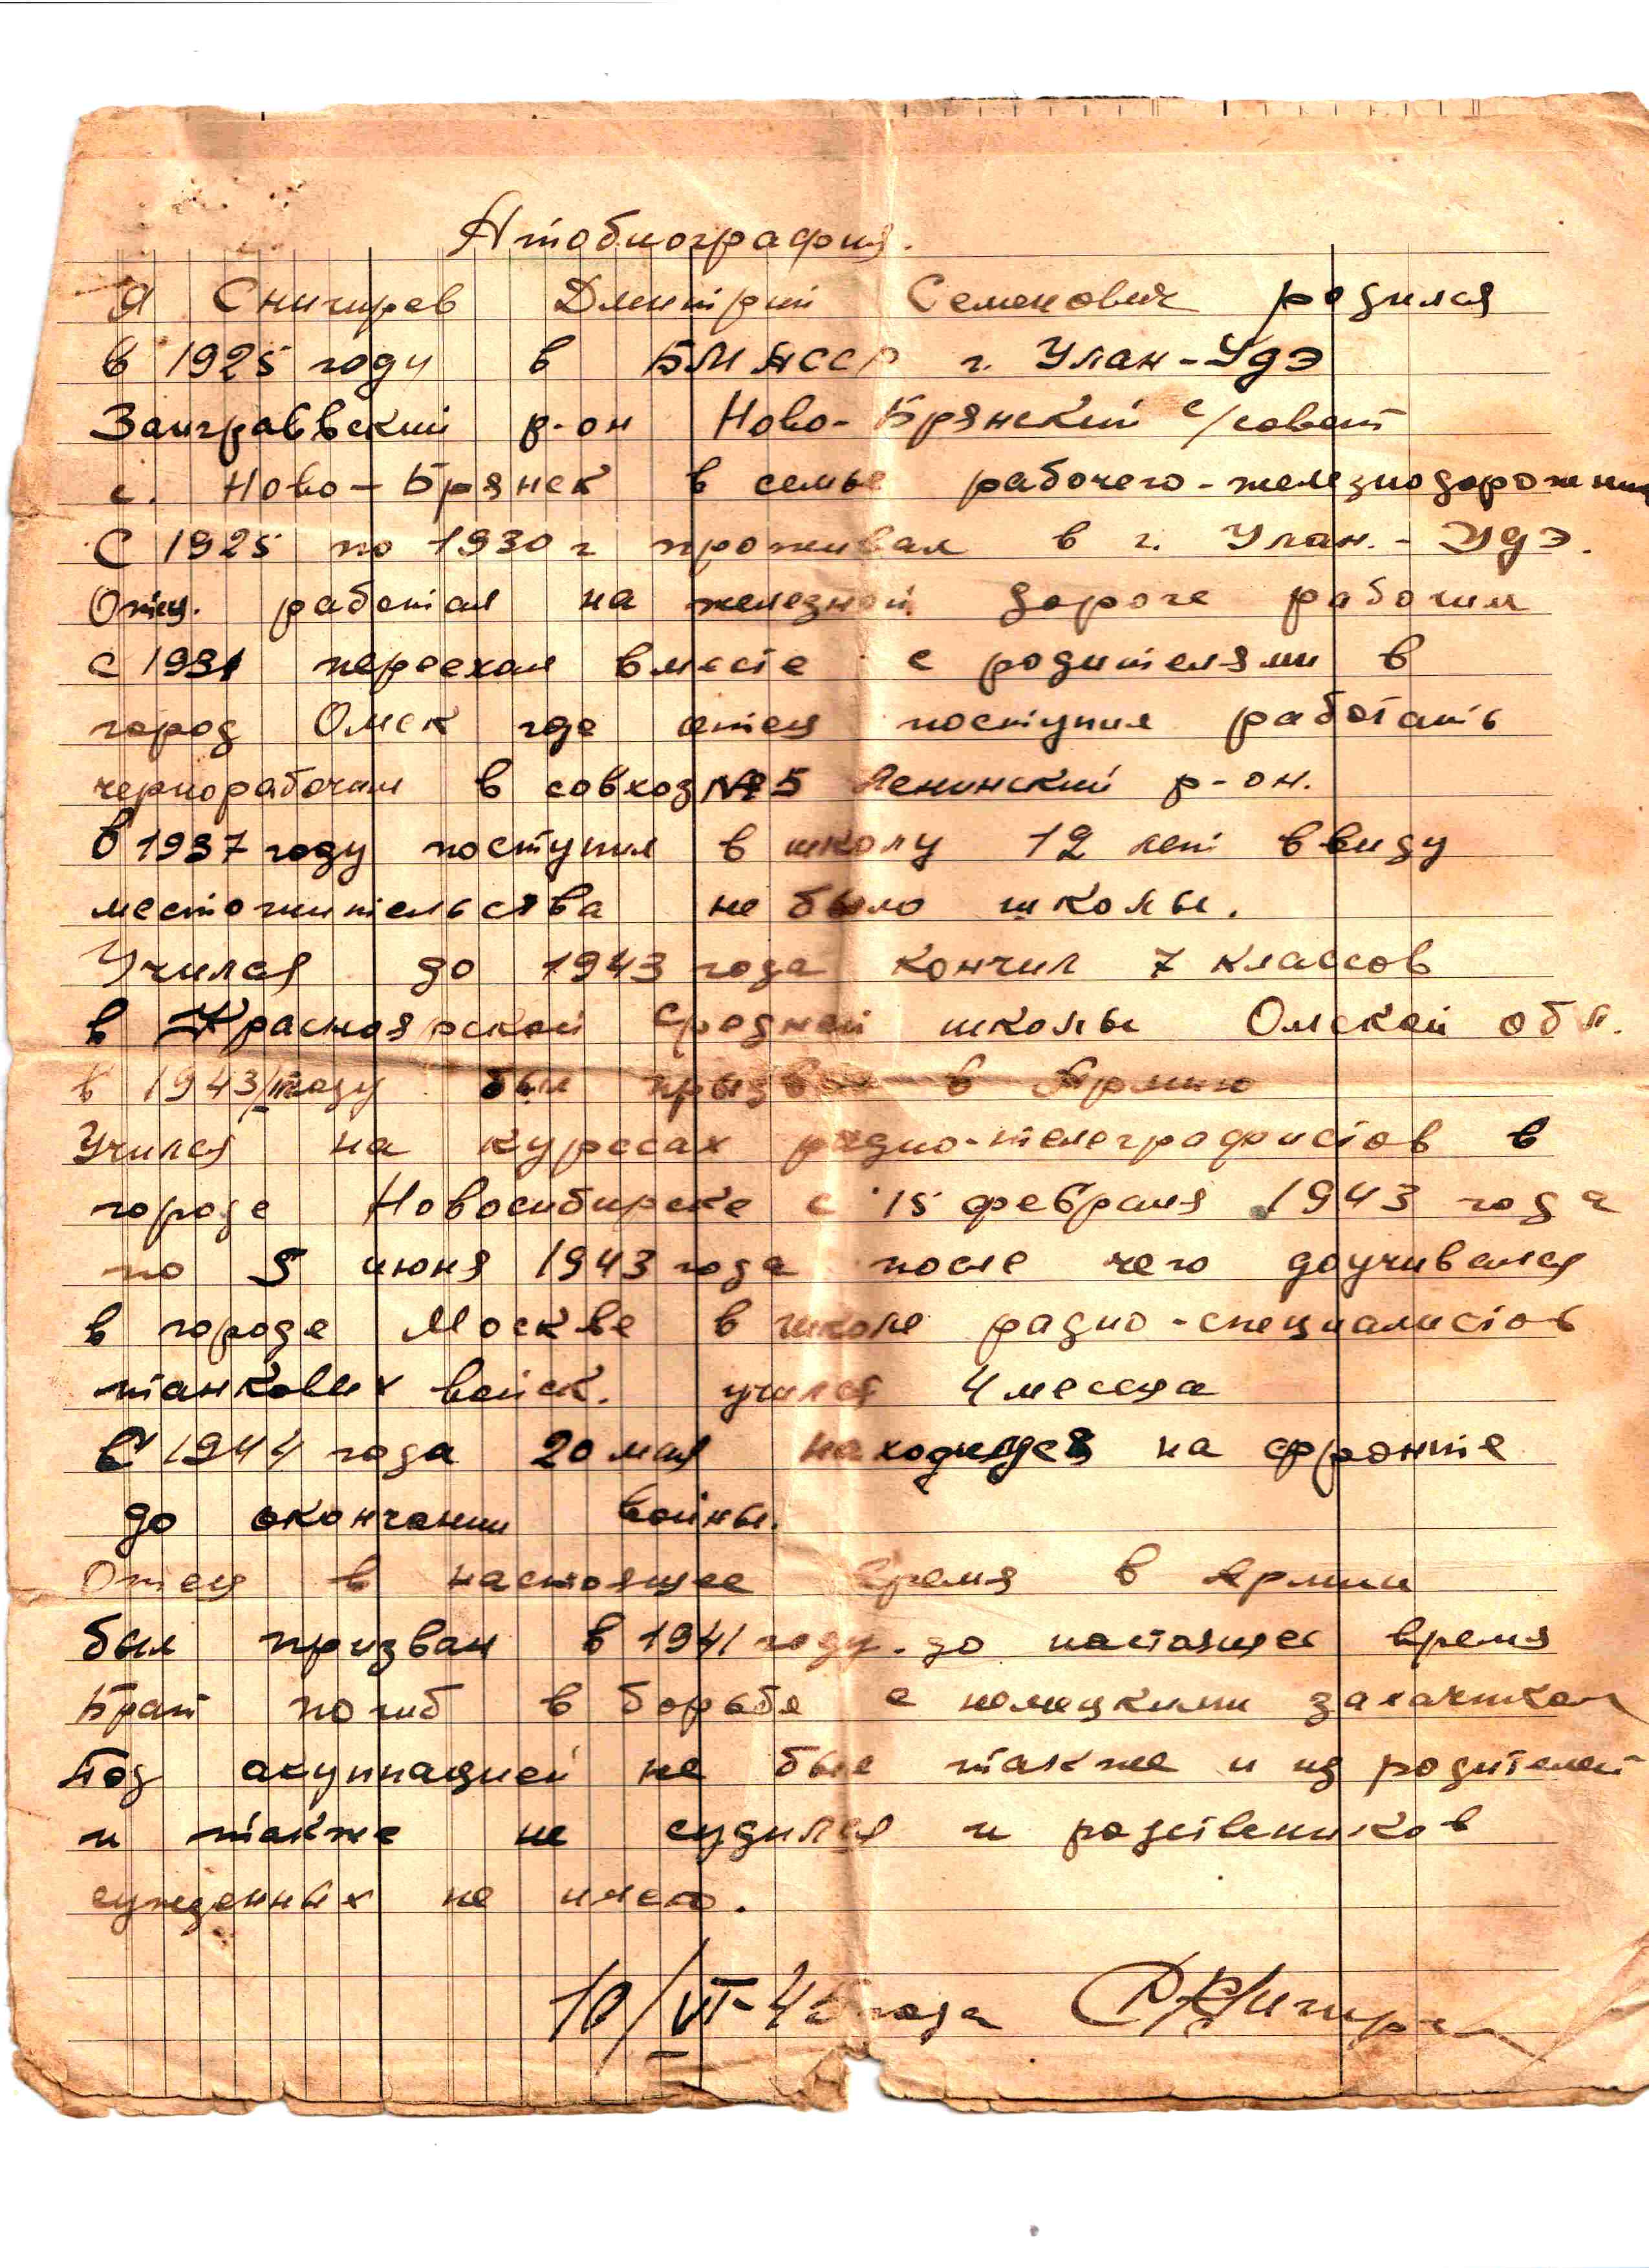 Атобиография.
Я Сничирев Дмитрий Семенович родился
в 1925 году в БМАССР г. Улан-Удэ
Заиграевский р-он Ново-Брянский с/совет
с. Ново-Брянск в семье рабочего-железнодорожни
С 1925 по 1930 г проживал в г. Улан.-Удэ.
Отец. работал на железной дороге рабочим
с 1931 переехал вместе с родителями в
город Омск где отец поступил работать
чернорабочим в совхоз №5 Ленинский р-он.
В 1937 году поступил в школу 12 лет ввиду
местожительства не было школы.
Учился до 1943 года кончил 7 классов
в Красноярской средней школы Омской обл.
в 1943/ году был призван в Армию
Учился на курсах радио-телеграфистов в
городе Новосибирске с 15 февраля 1943 года
по 5 июня 1943 года после чего доучивался
в городе Москве в школе радио-специалистов
танковых войск. учился 4 месеца
С 1944 года 20 мая находился на фронте
до окончании войны.
Отец в настоящее время в Армии
был призван в 1941 году. до настаящее время
Брат погиб в борьбе с немецкими захатчикам
Под акуппацией не был также и из родителей
и также не судился и родственников
сужденных не имею.
10/VI-45 года